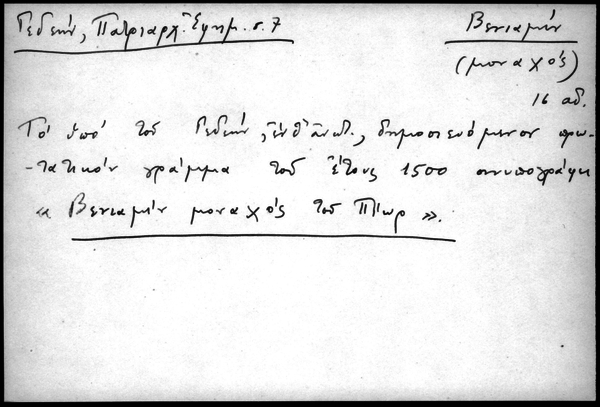 Γεδεών, Πατριαρχ. Ἐφημ. σ. 7
Βενιαμίν
(μοναχός)
16 αἰ.
Τό ὑπό τοῦ Γεδεών, ἔνθ' ἀνωτ., δημοσιευόμενον πρω-
-τατικόν γράμμα τοῦ ἔτους 1500 συνυπογράφει
« Βενιαμίν μοναχός τοῦ Πίωρ ».